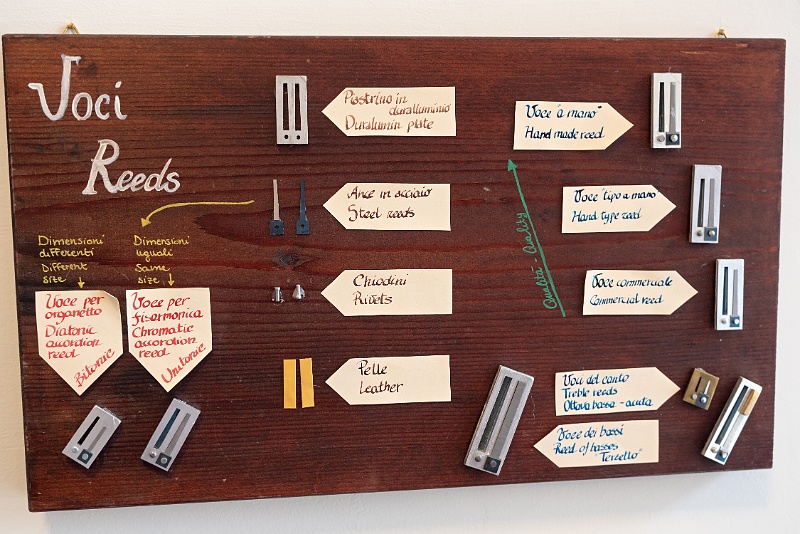 Voci
Reeds
Piastrino in
duralluminio
Duralumin plate
Ance in acciaio
Steel reeds
Chiodini
Rivets
Pelle
Leather
Voce "a mano"
Hand made reed
Voce "tipo a mano"
Hand type reed
Voce commerciale
Commercial reed
Qualità - Quality
Dimensioni
differenti
Different
size
Dimensioni
uguali
Same
size
Voce per
organetto
Diatonic
accordion
reed
Bitonic
Voce per
fisarmonica
Chromatic
accordion
reed
Unitonic
Voci del canto
Treble reeds
Ottava bassa - acuta
Voce dei bassi
Reed of basses
"Terzetto"